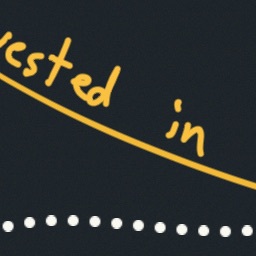 vested in